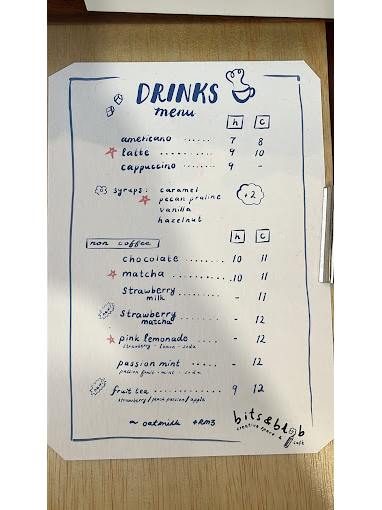 DRINKS
menu
h c
americano ...... 7 8
latte ......... 9 10
cappuccino ...... 9 -
syrups: caramel
pecan praline +2
vanilla
hazelnut
non coffee h c
chocolate ....... 10 11
matcha ......... 10 11
strawberry milk ........ - 11
strawberry matcha ........ - 12
pink lemonade ..... - 12
strawberry - lemon - soda
passion mint ..... - 12
passion fruit - mint - soda
fruit tea ............ 9 12
strawberry/peach passion/apple
~ oatmilk +RM3
bits&blob
creative space & café